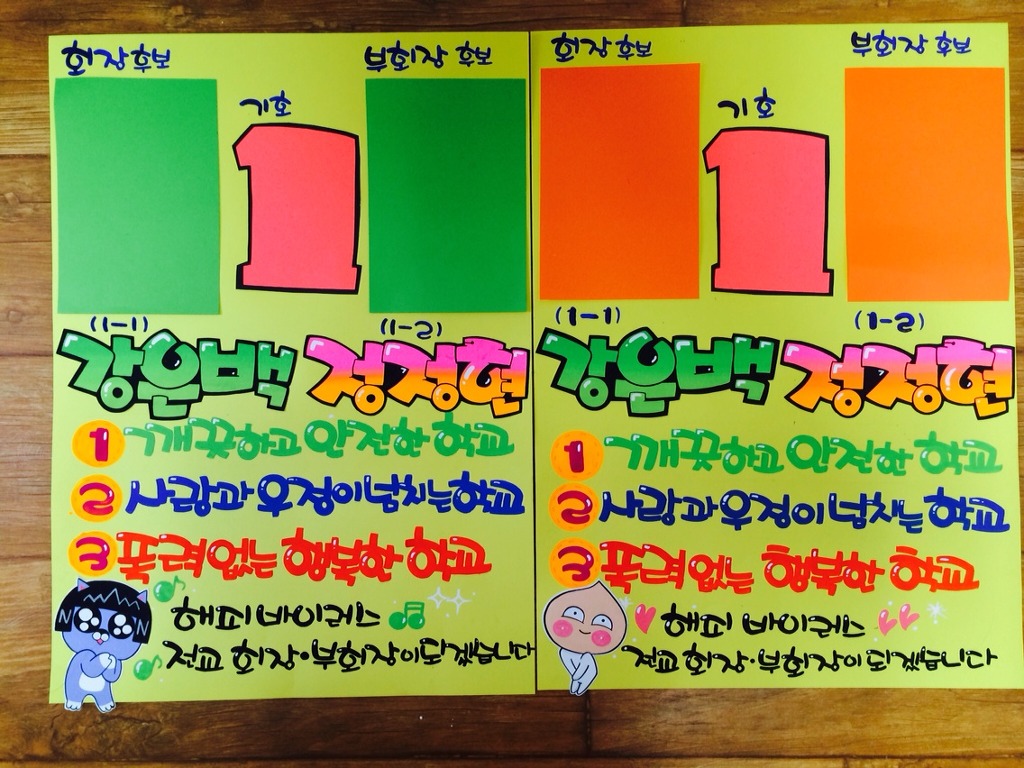 회장후보 부회장 후보
기호
1
(1-1) (1-2)
강은백 정정현
1 깨끗하고 안전한 학교
2 사랑과 우정이 넘치는 학교
3 폭력없는 행복한 학교
해피바이러스
전교 회장·부회장이 되겠습니다
회장후보 부회장 후보
기호
1
(1-1) (1-2)
강은백 정정현
1 깨끗하고 안전한 학교
2 사랑과 우정이 넘치는 학교
3 폭력없는 행복한 학교
해피 바이러스
전교 회장·부회장이 되겠습니다